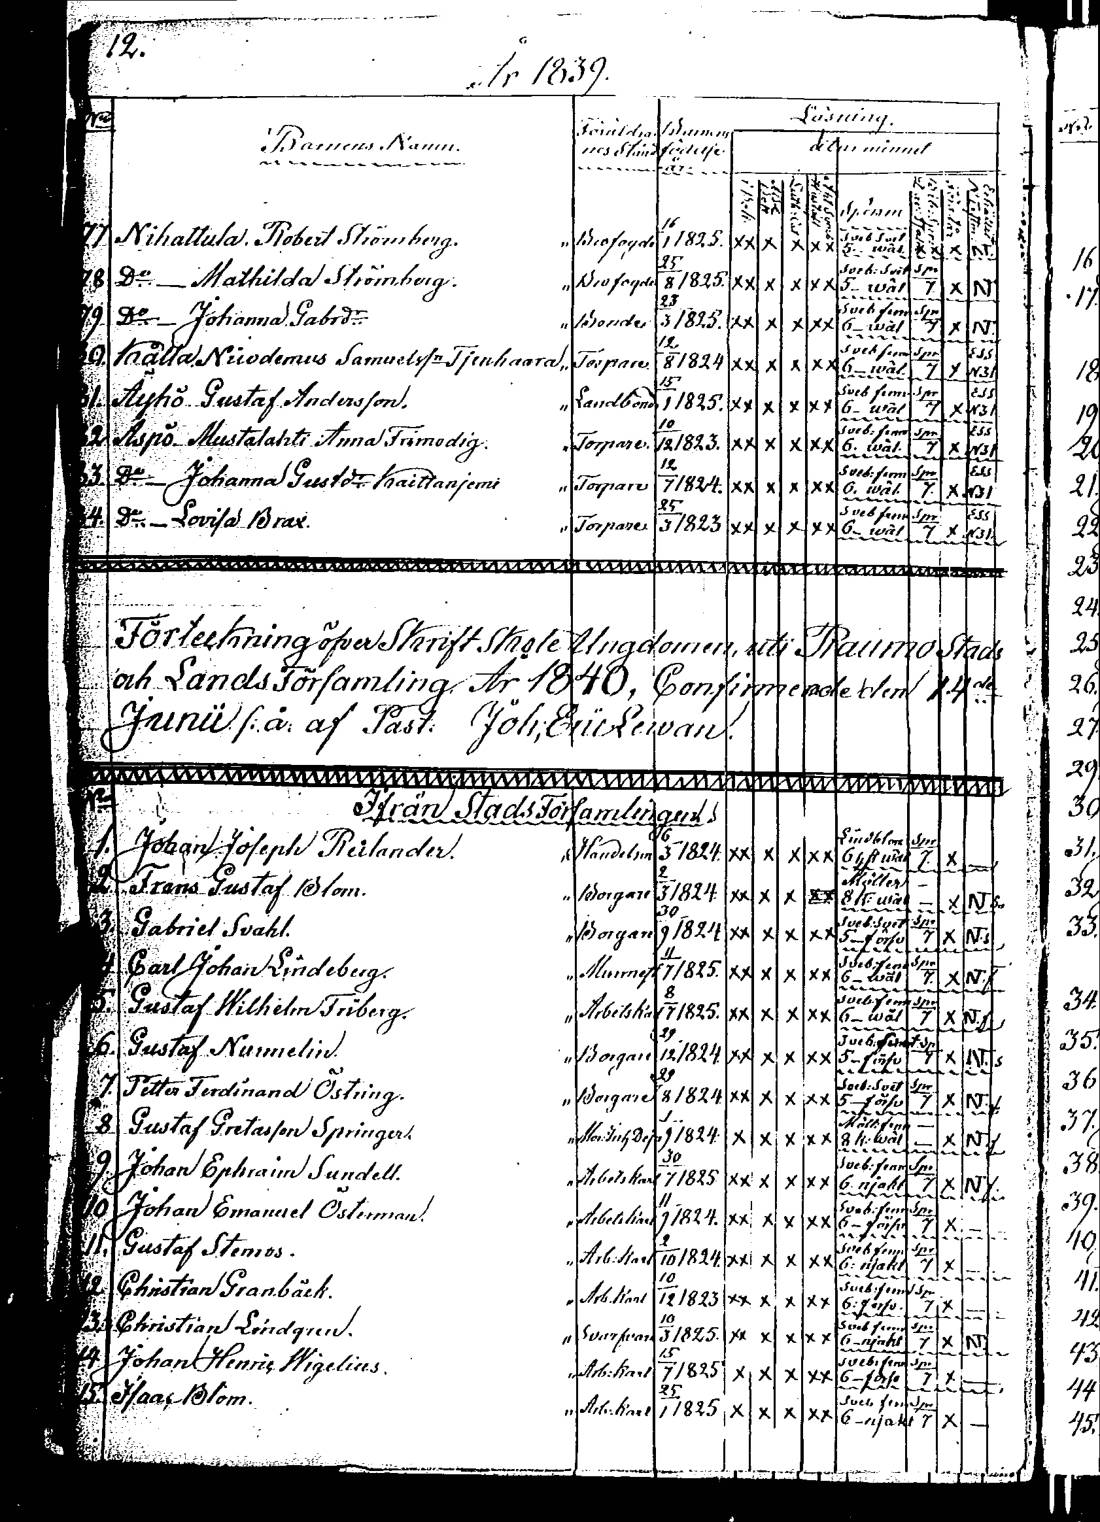 12.
År 1839.
No Barnens Namn. Föräldrarnes Stånd Barnens födelse år Läsning.
utur minnet
i Bok Spörsm
77 Nihattula. Robert Strömberg. " Brofogde 16/1 1825. xx x x xx Sveb Svit 5- wäl x x
78 Do — Mathilda Strömberg. " Brofogde 25/8 1825. xx x x xx Sveb: Svit 5- wäl Spr 7 x N
79 Do — Johanna Gabrdr " Bonde 23/3 1825. xx x x xx Sveb: finn 6- wäl Spr 7 x N.
80. Kålla Nicodemus Samuelssn Tjenhaara " Torpare 12/8 1824 xx x x xx Sveb finn 6- wäl Spr 7 x ESS N31
81. Äyhö Gustaf Andersson. " Landbonde 15/1 1825. xx x x xx Sveb finn 6- wäl Spr 7 x ESS N31
82 Aspö- Mustalahti Anna Frimodig. " Torpare 10/12 1823. xx x x xx Sveb: finn 6. wäl Spr 7 x ESS N31
83. Do — Johanna Gustdr Kaittanjemi " Torpare 12/7 1824. xx x x xx Sveb: finn 6. wäl Spr 7. x ESS N31
84. Do — Lovisa Brax. " Torpare 25/3 1823 xx x x xx Sveb finn 6- wäl Spr 7 x ESS N31
Förteckning öfver Skrift Skole Ungdomen, uti Raumo Stads
och Lands Församling År 1840, Confirmerade den 14de
Junii s. å. af Past: Joh; Eric Lewan.
No Ifrån Stads Församlingen
1. Johan Joseph Reilander. " Handelsm 16/3 1824. xx x x xx Lindblom 6 wäl Spr 7 x —
2 Frans Gustaf Blom. " Borgare 2/3 1824 xx x x xx Möller 8 k: wäl — — x N.s
3 Gabriel Svahl. " Borgare 30/9 1824 xx x x xx Sveb: Svit 5- försv Spr 7 x N.s
4 Carl Johan Lindeberg. " 11/7 1825. xx x x xx Sveb: finn 6- wäl Spr 7 x N.f
5. Gustaf Wilhelm Friberg. " Arbetska 8/7 1825. xx x x xx Sveb: finn 6- wäl Spr 7 x N.f
6 Gustaf Nummelin. " Borgare 29/12 1824 xx x x xx Sveb: 5- försv Spr 7 x N.s
7. Petter Ferdinand Östring. " Borgare 29/8 1824 xx x x xx Sveb: Svit 5- försv Spr 7 x N.f
8 Gustaf Gretasson Springer. " 1/9 1824. x x x xx Möll: finn 8 k: wäl — — x N.f
9 Johan Ephraim Sundell. " Arbetskarl 30/7 1825 xx x x xx Sveb: finn 6. njakt Spr 7 x N f.
10 Johan Emanuel Österman. " Arbetskarl 11/9 1824. xx x x xx Sveb: finn 6- försv Spr 7 x —
11. Gustaf Stemos. " Arb: Karl 2/10 1824. xx x x xx Sveb finn 6: njakt Spr 7 x —
12 Christian Granbäck. " Arb. Karl 10/12 1823 xx x x xx Sveb: finn 6: försv. Spr 7 x —
13. Christian Lindgren. " Svarfvare 10/3 1825. xx x x xx Sveb finn 6- njakt Spr 7 x N.
14 Johan Henric Wigelius. " Arb: Karl 15/7 1825 x x x xx Sveb: finn 6- försv Spr 7 x —
15. Isaac Blom. " Arb: Karl 25/1 1825 x x x xx Sveb finn 6- njakt Spr 7 x —
16
17.
18
19
20
21.
22
23
24.
25
26.
27
29
30
31.
32
33.
34.
35.
36
37.
38
39.
40
41.
42
43
44
45.